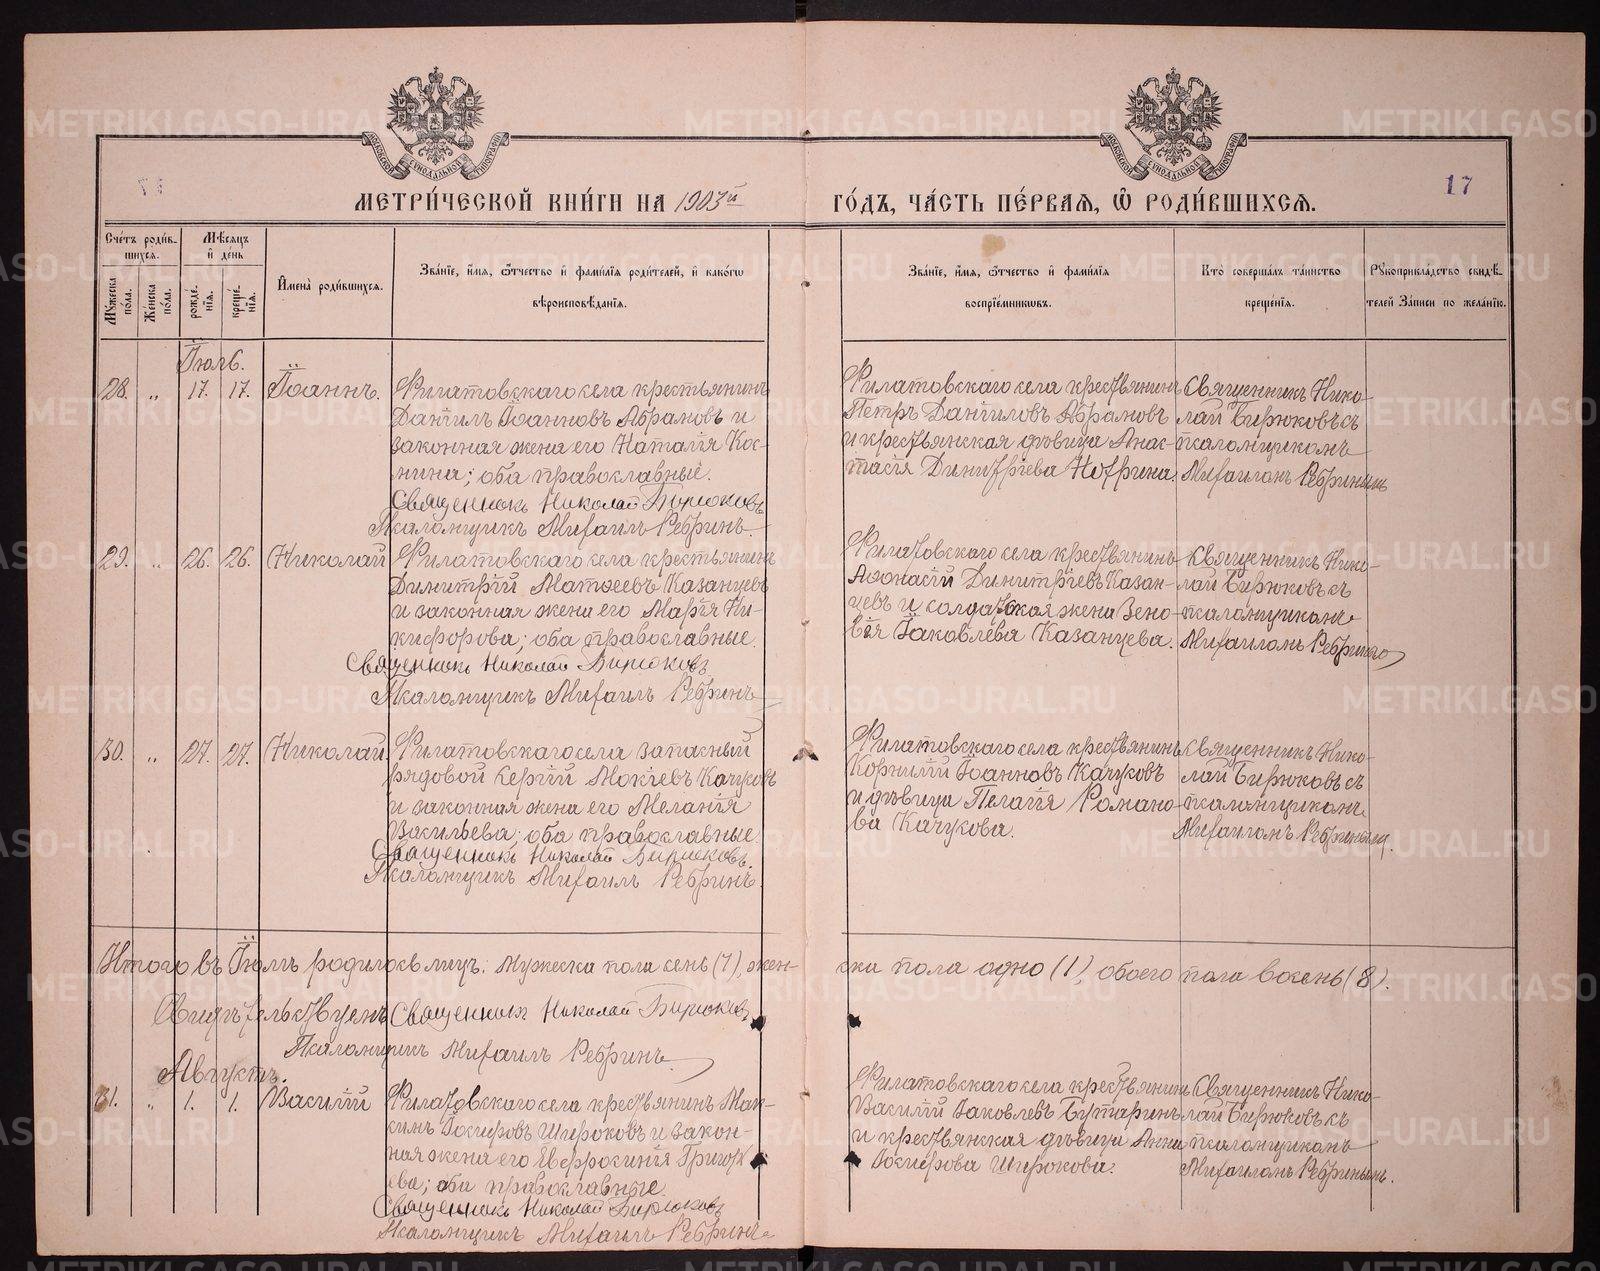 МОСКОВСКОЙ СѴНОДАЛЬНОЙ ТИПОГРАФІИ
МОСКОВСКОЙ СѴНОДАЛЬНОЙ ТИПОГРАФІИ
17
МЕТРИ́ЧЕСКОЙ КНИ́ГИ НА 1903й ГО́ДЪ, ЧА́СТЬ ПЕ́РВАѦ, Ѡ РОДИ́ВШИХСѦ.
Сче́тъ роди́в-
шихся.
Мѣ́сяцъ
и҆ де́нь
Мꙋжеска по́ла.
Женска по́ла.
рожде́нїѧ.
креще́нїѧ.
И҆мена̀ роди́вшихся.
Зва́нїе, и҆́мѧ, ѻ҆́тчество и҆ фами́лїѧ роди́телей, и҆ како́гѡ
вѣроисповѣ́данїѧ.
Зва́нїе, и҆́мѧ, ѻ҆́тчество и҆ фами́лїѧ
воспрїе́мникѡвъ.
Кто̀ соверша́лъ та́инство
креще́нїѧ.
Рꙋкоприкла́дство свидѣ́-
телей За́писи по жела́нїю.
Іюль.
28. „ 17. 17. Іоаннъ.
Филатовскаго села крестьянинъ
Даніилъ Іоанновъ Абрамовъ и
законная жена его Наталія Кос-
мина; оба православные.
Священникъ Николай Бирюковъ
Псаломщикъ Михаилъ Ребринъ.
Филатовскаго села крестьянинъ
Петръ Данииловъ Абрамовъ
и крестьянская дѣвица Анас-
тасія Димитріева
Священникъ Нико-
лай Бирюковъ съ
псаломщикомъ
Михаиломъ Ребринымъ
29. „ 26. 26. Николай
Филатовскаго села крестьянинъ
Димитрій Матѳеевъ Казанцевъ
и законная жена его Марія Ни-
кифорова; оба православные.
Священникъ Николай Бирюковъ
Псаломщикъ Михаилъ Ребринъ
Филатовскаго села крестьянинъ
Аѳонасій Димитріевъ Казан-
цевъ и солдатская жена Зено-
вія Іаковлева Казанцева.
Священникъ Нико-
лай Бирюковъ съ
псаломщикомъ
Михаиломъ
30. „ 27. 27. Николай
Филатовскаго села запасный
рядовой Сергій Мокіевъ Качуковъ
и законная жена его Меланія
Васильева; оба православные.
Священникъ Николай Бирюковъ.
Псаломщикъ Михаилъ Ребринъ.
Филатовскаго села крестьянинъ
Корнилій Іоанновъ Качуковъ
и дѣвица Пелагія Романо-
ва Качукова.
Священникъ Нико-
лай Бирюковъ съ
псаломщикомъ
Михаиломъ Ребринымъ.
Итого въ Іюлѣ родилось лицъ: Мужеска пола семь (7), жен-
ска пола одно (1), обоего пола восемь (8).
Свидѣтельствуемъ Священникъ Николай Бирюковъ
Псаломщикъ Михаилъ Ребринъ.
Августъ.
31. „ 1. 1. Василій
Филатовскаго села крестьянинъ Мак-
симъ Іосифовъ Широковъ и закон-
ная жена его Евфросинія Григорь-
ева; оба православные.
Священникъ Николай Бирюковъ
Псаломщикъ Михаилъ Ребринъ
Филатовскаго села крестьянинъ
Василій Іаковлевъ Бутаринъ
и крестьянская дѣвица Анна
Іосифова Широкова.
Священникъ Нико-
лай Бирюковъ съ
псаломщикомъ
Михаиломъ Ребринымъ.
METRIKI.GASO-URAL.RU